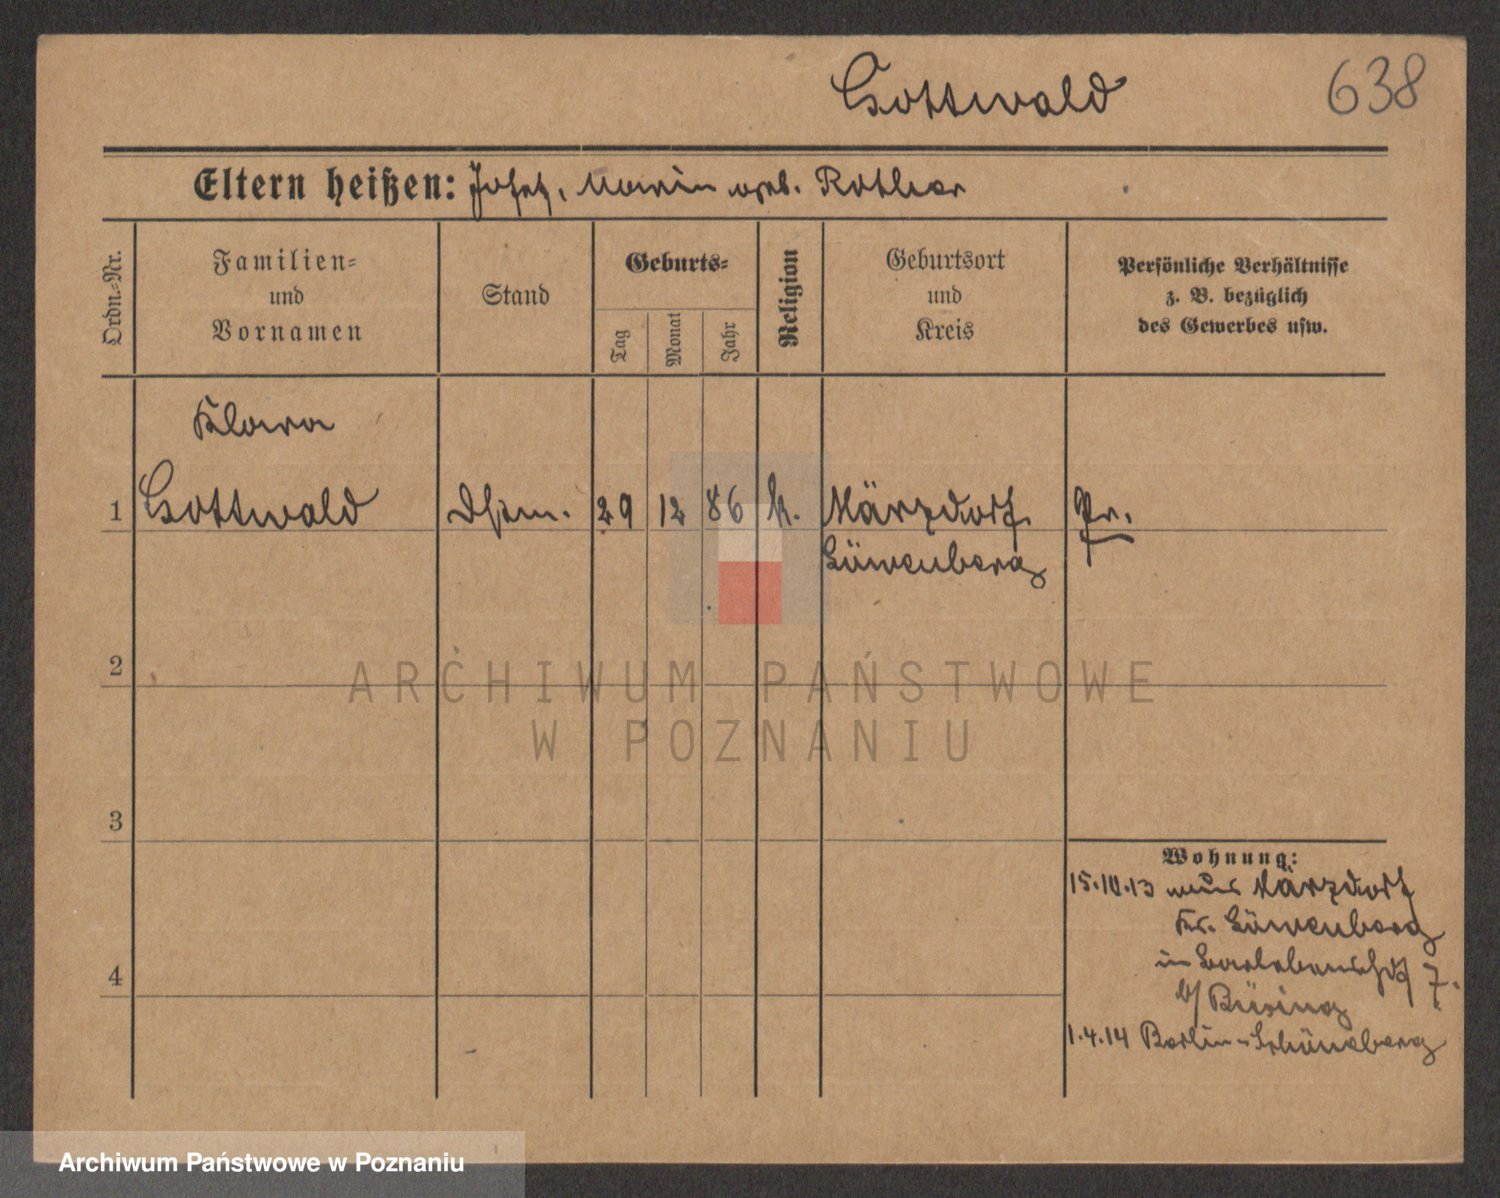 Gottwald
638
Eltern heißen: Josef, Maria geb. Rother
Ordn.-Nr.
Familien-
und
Vornamen
Stand
Geburts-
Tag
Monat
Jahr
Religion
Geburtsort
und
Kreis
Persönliche Verhältnisse
z. B. bezüglich
des Gewerbes usw.
Klara
1 Gottwald 29 12 86 k. Märzdorf Pr.
Löwenberg
2
3
4
Wohnung:
15.10.13 aus Märzdorf
Kr. Löwenberg
in 7.
b/ Büsing
1.4.14 Berlin-Schöneberg
ARCHIWUM PAŃSTWOWE
W POZNANIU
Archiwum Państwowe w Poznaniu